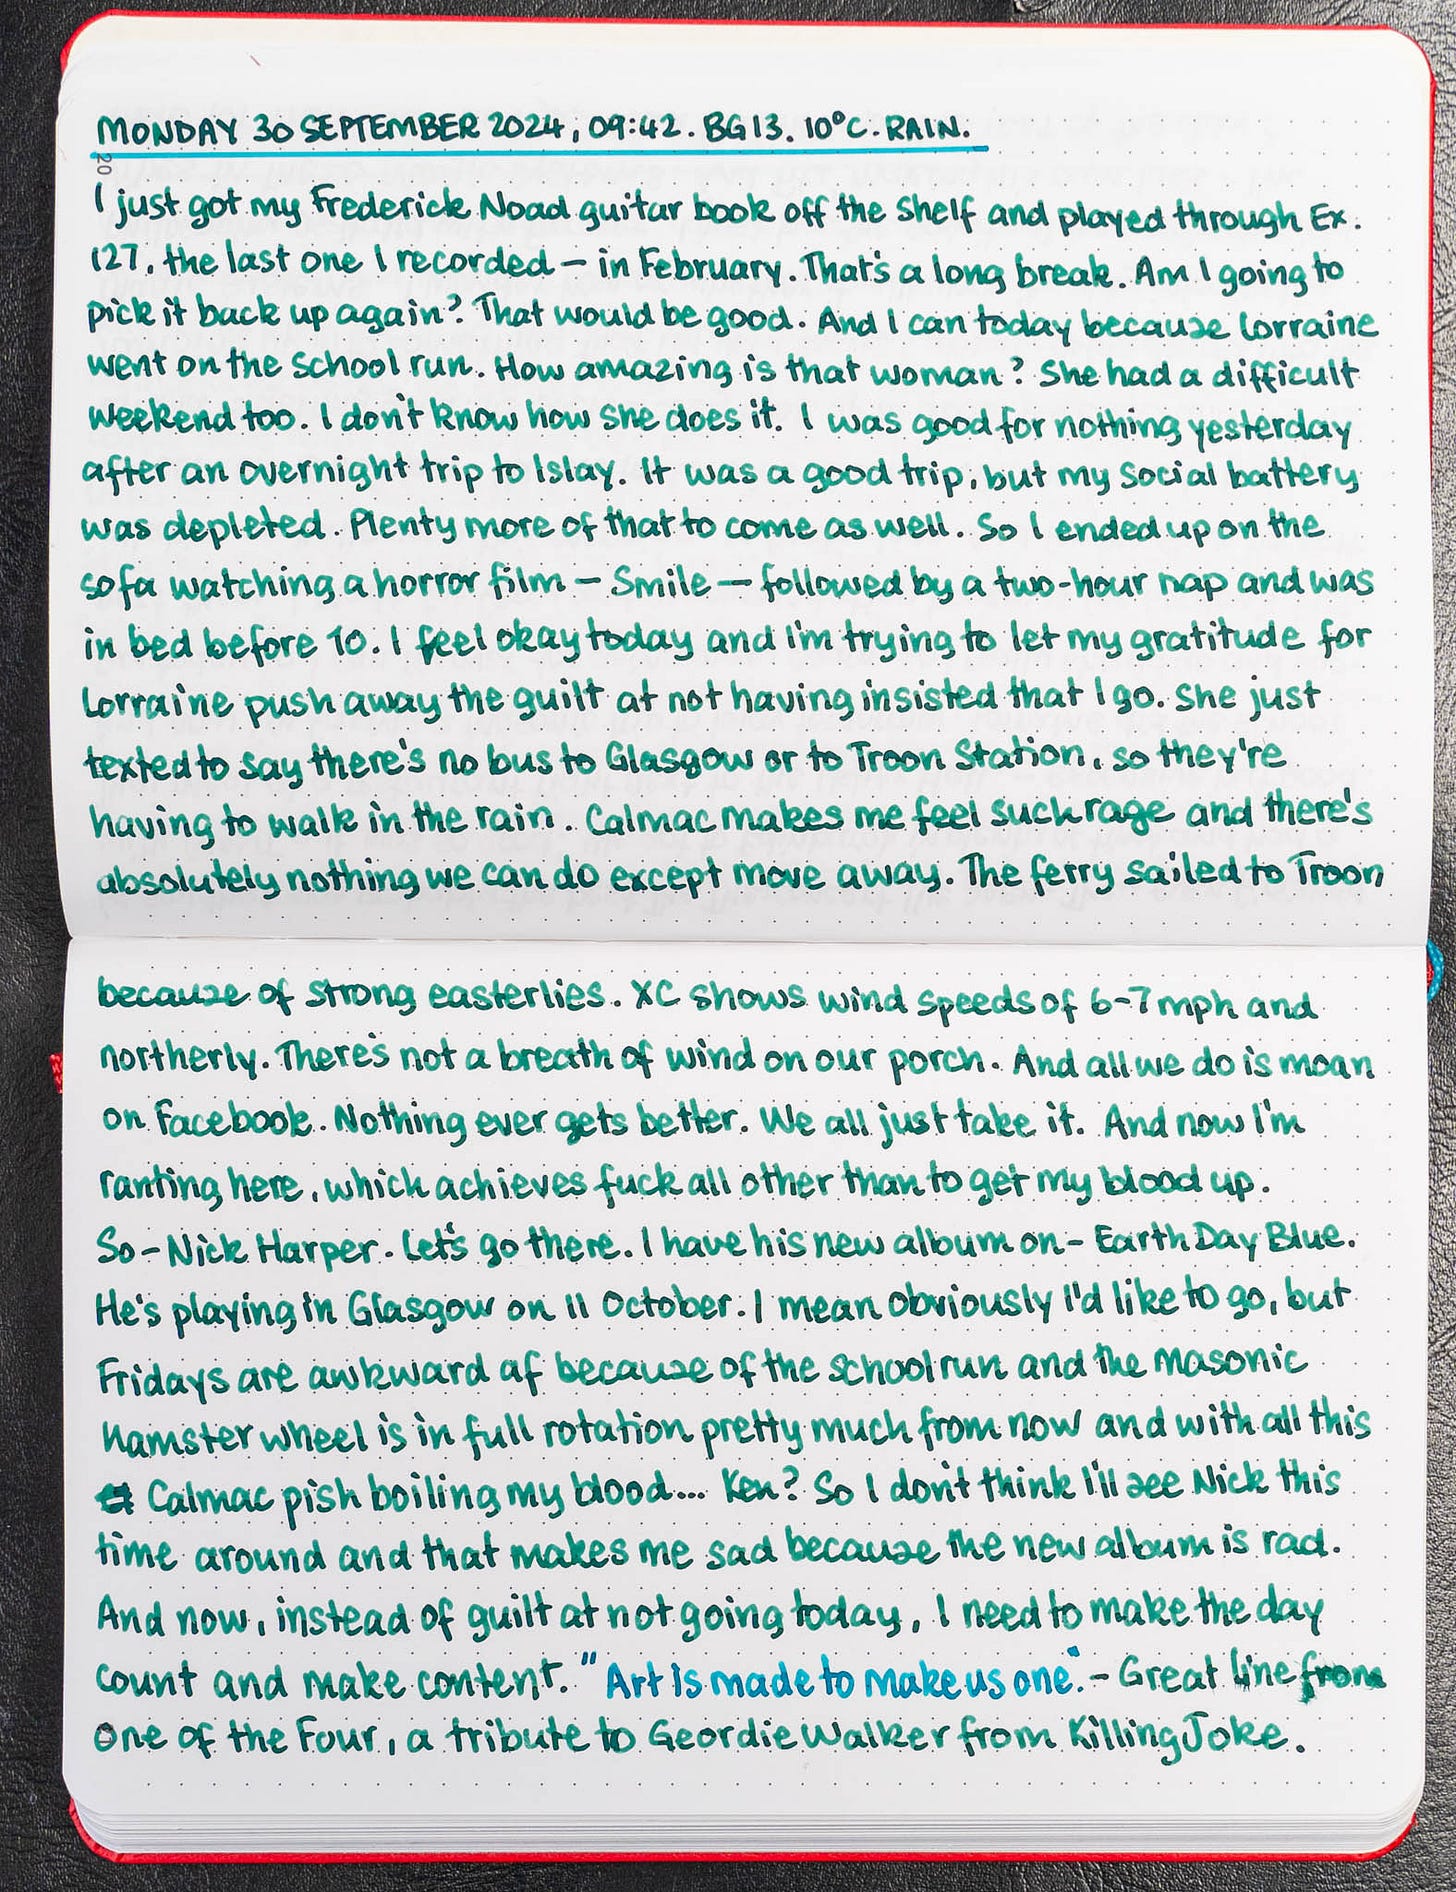 MONDAY 30 SEPTEMBER 2024, 09:42. BG13. 10°C. RAIN.
20
I just got my Frederick Noad guitar book off the shelf and played through Ex.
127, the last one I recorded – in February. That's a long break. Am I going to
pick it back up again? That would be good. And I can today because Lorraine
went on the school run. How amazing is that woman? She had a difficult
weekend too. I don't know how she does it. I was good for nothing yesterday
after an overnight trip to Islay. It was a good trip, but my social battery
was depleted. Plenty more of that to come as well. So I ended up on the
sofa watching a horror film – Smile – followed by a two-hour nap and was
in bed before 10. I feel okay today and I'm trying to let my gratitude for
Lorraine push away the guilt at not having insisted that I go. She just
texted to say there's no bus to Glasgow or to Troon Station, so they're
having to walk in the rain. Calmac makes me feel such rage and there's
absolutely nothing we can do except move away. The ferry sailed to Troon
because of strong easterlies. XC shows wind speeds of 6-7 mph and
northerly. There's not a breath of wind on our porch. And all we do is moan
on Facebook. Nothing ever gets better. We all just take it. And now I'm
ranting here, which achieves fuck all other than to get my blood up.
So – Nick Harper. Let's go there. I have his new album on – Earth Day Blue.
He's playing in Glasgow on 11 October. I mean obviously I'd like to go, but
Fridays are awkward af because of the school run and the masonic
hamster wheel is in full rotation pretty much from now and with all this
Calmac pish boiling my blood... Ken? So I don't think I'll see Nick this
time around and that makes me sad because the new album is rad.
And now, instead of guilt at not going today, I need to make the day
count and make content. "Art is made to make us one." – Great line from
One of the Four, a tribute to Geordie Walker from Killing Joke.